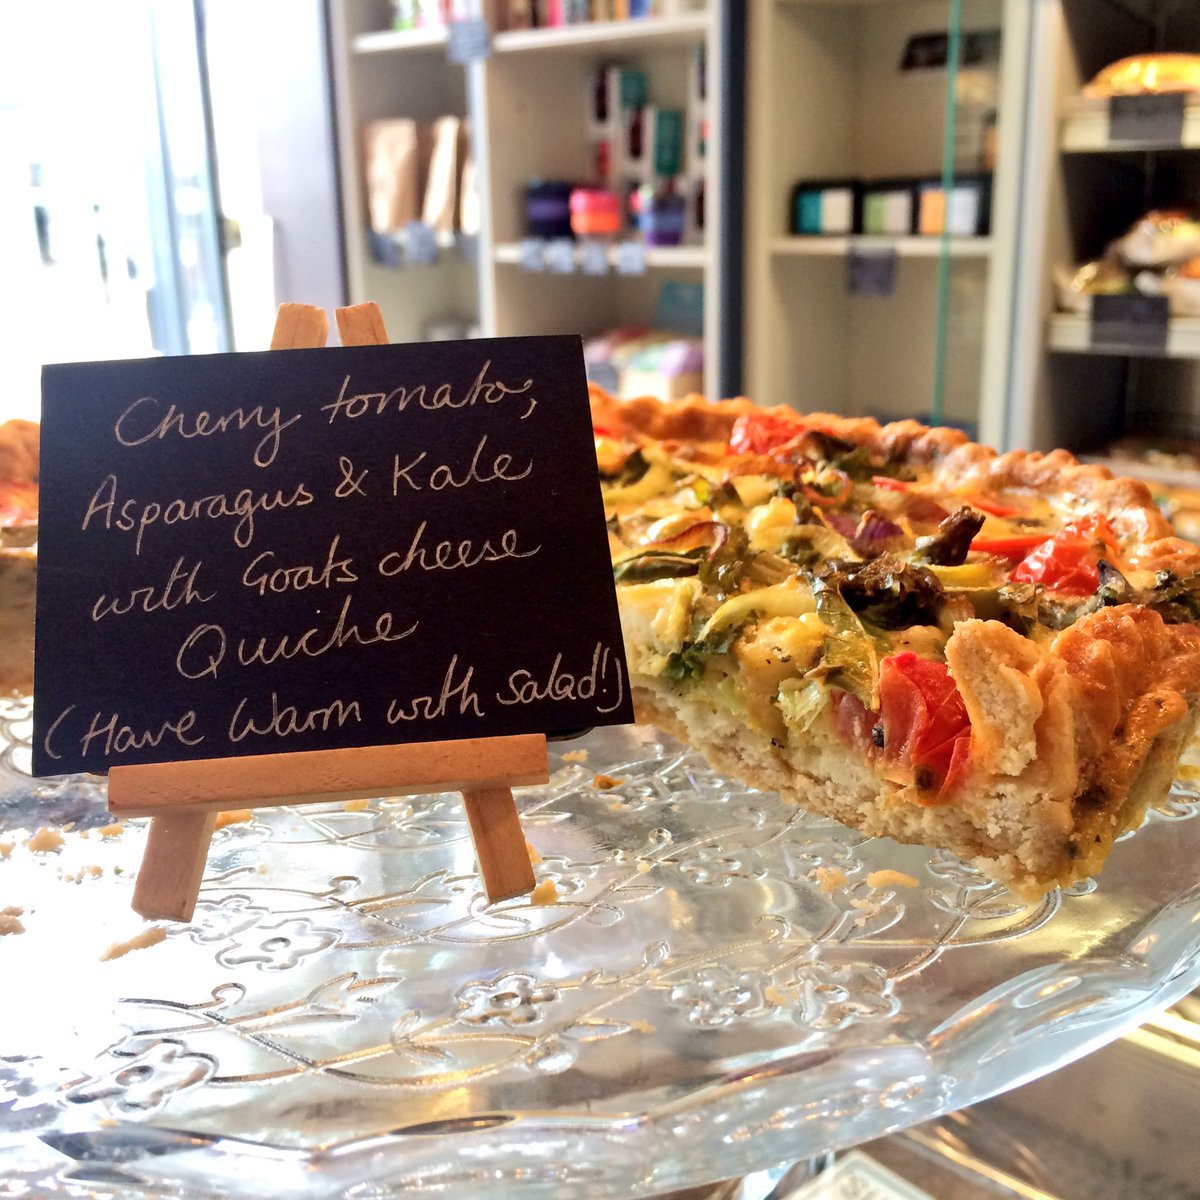 Cherry tomato,
Asparagus & Kale
with Goats cheese
Quiche
(Have Warm with salad!)